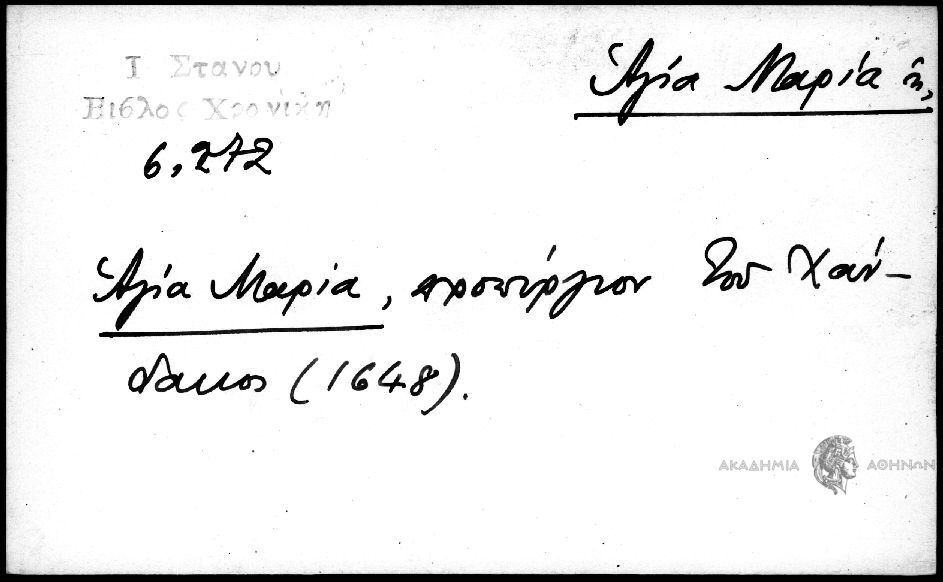 Ι Στανου
Βίβλος Χρονική
Ἁγία Μαρία ἡ,
6,272
Ἁγία Μαρία, προπύργιον τοῦ Χάν-
δακος (1648).
ΑΚΑΔΗΜΙΑ ΑΘΗΝΩΝ